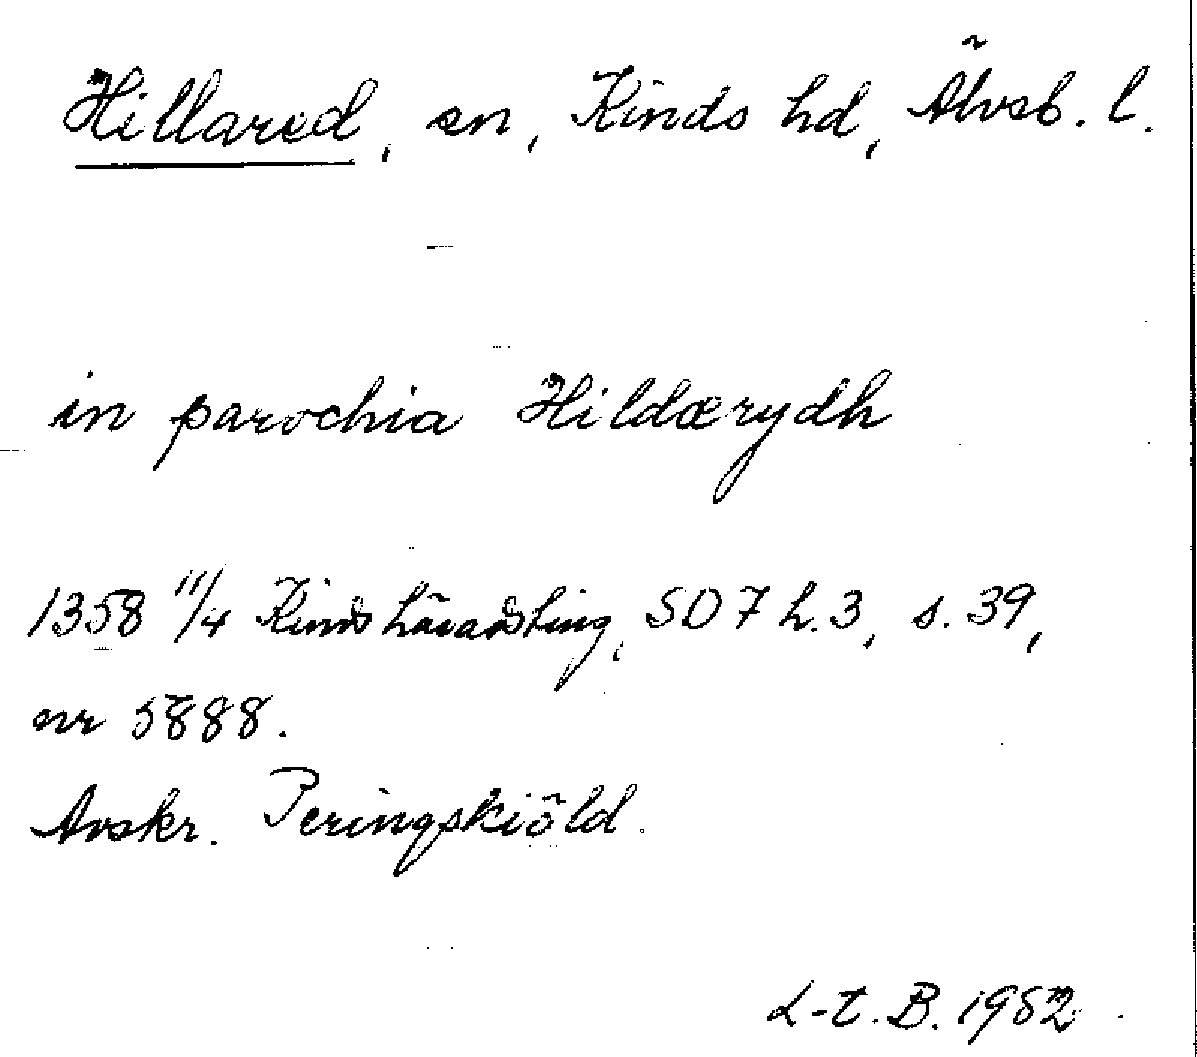 Hillared, sn, Kinds hd, Älvsb. l.
in parochia Hildærydh
1358 11/4 Kinds häradsting, SD 7 h. 3, s. 39,
nr 5888.
Avskr. Peringskiöld.
L-t. B. 1982